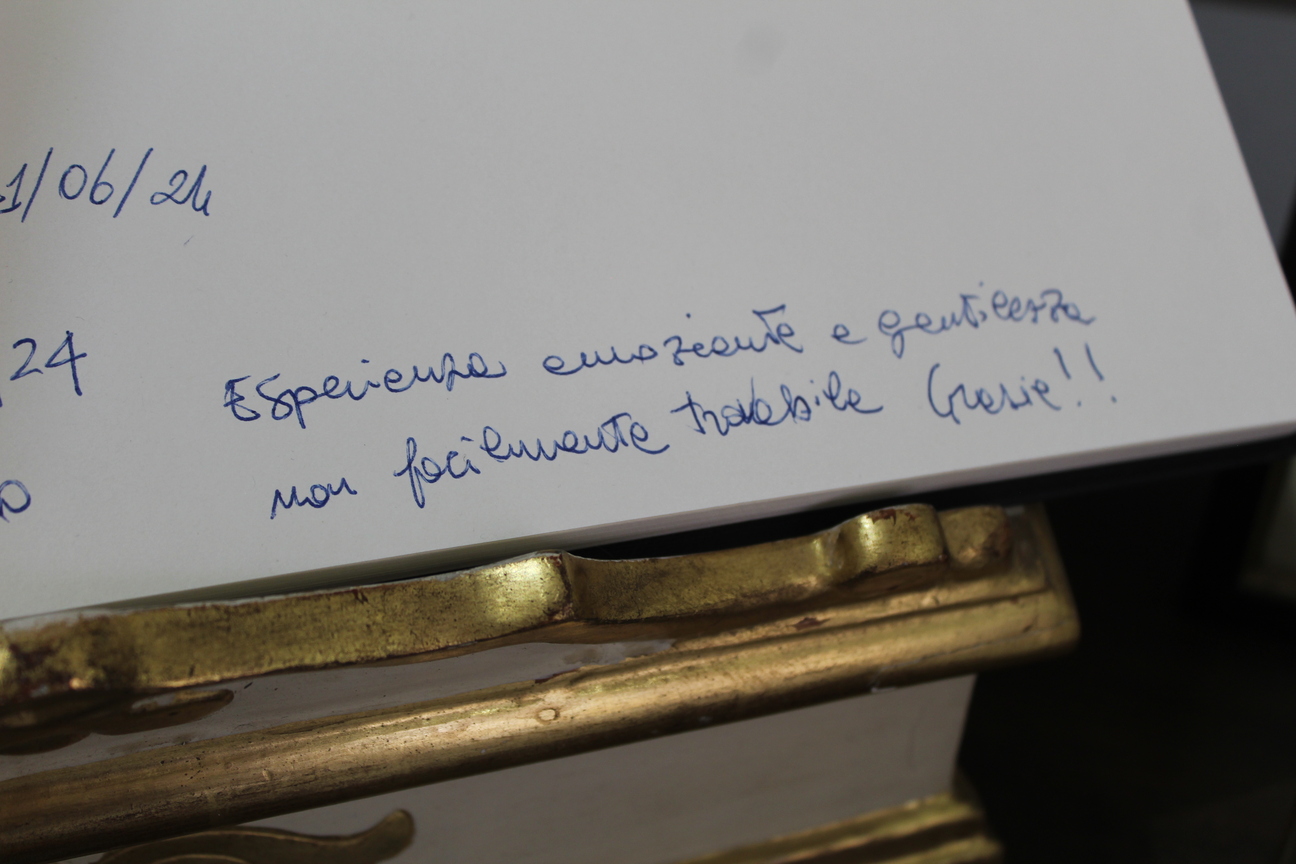 1/06/24
24
Esperienza emoziante e gentilezza
non facilmente trovabile Grazie!!